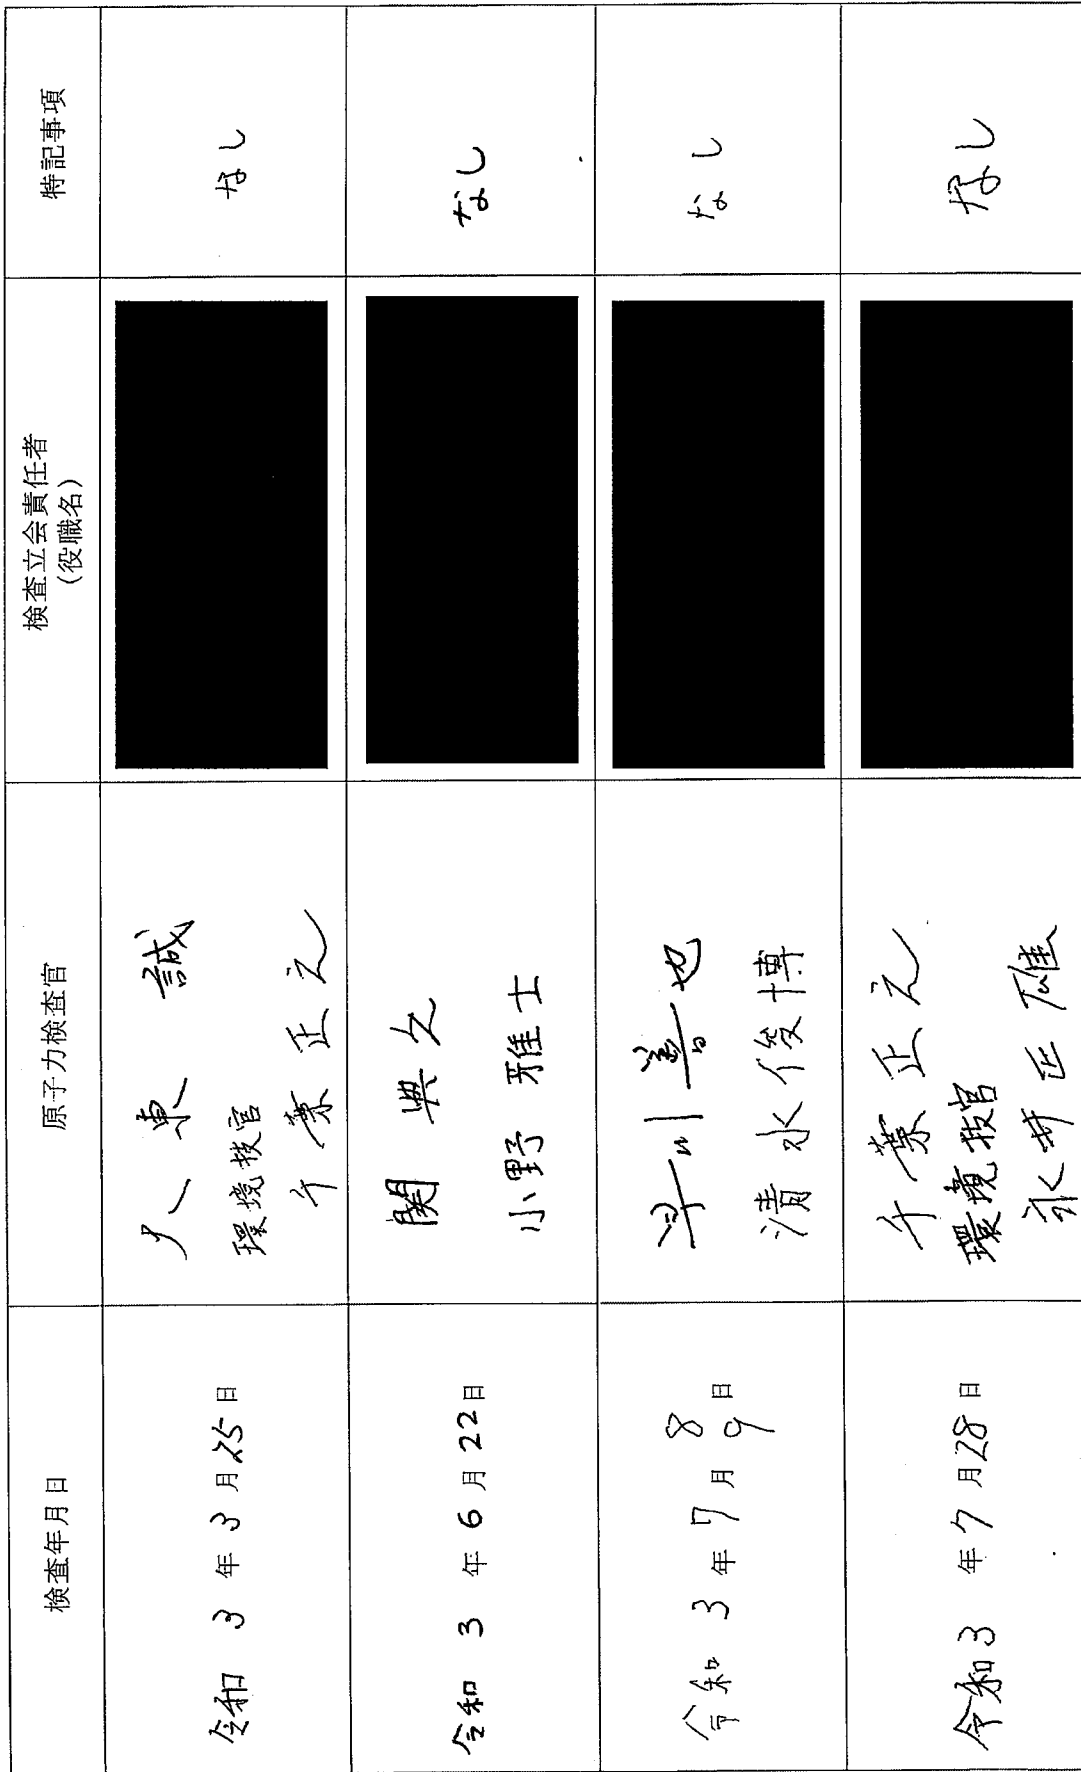 検査年月日
原子力検査官
検査立会責任者
(役職名)
特記事項
令和 3 年 3 月 25 日
東 誠
環境技官
千葉 正之
なし
令和 3 年 6 月 22 日
関 典之
小野 雅士
なし
令和 3 年 7 月 8 日
9
早川 善也
清水 俊博
なし
令和 3 年 7 月 28 日
千葉 正之
環境技官
永井 正雄
なし